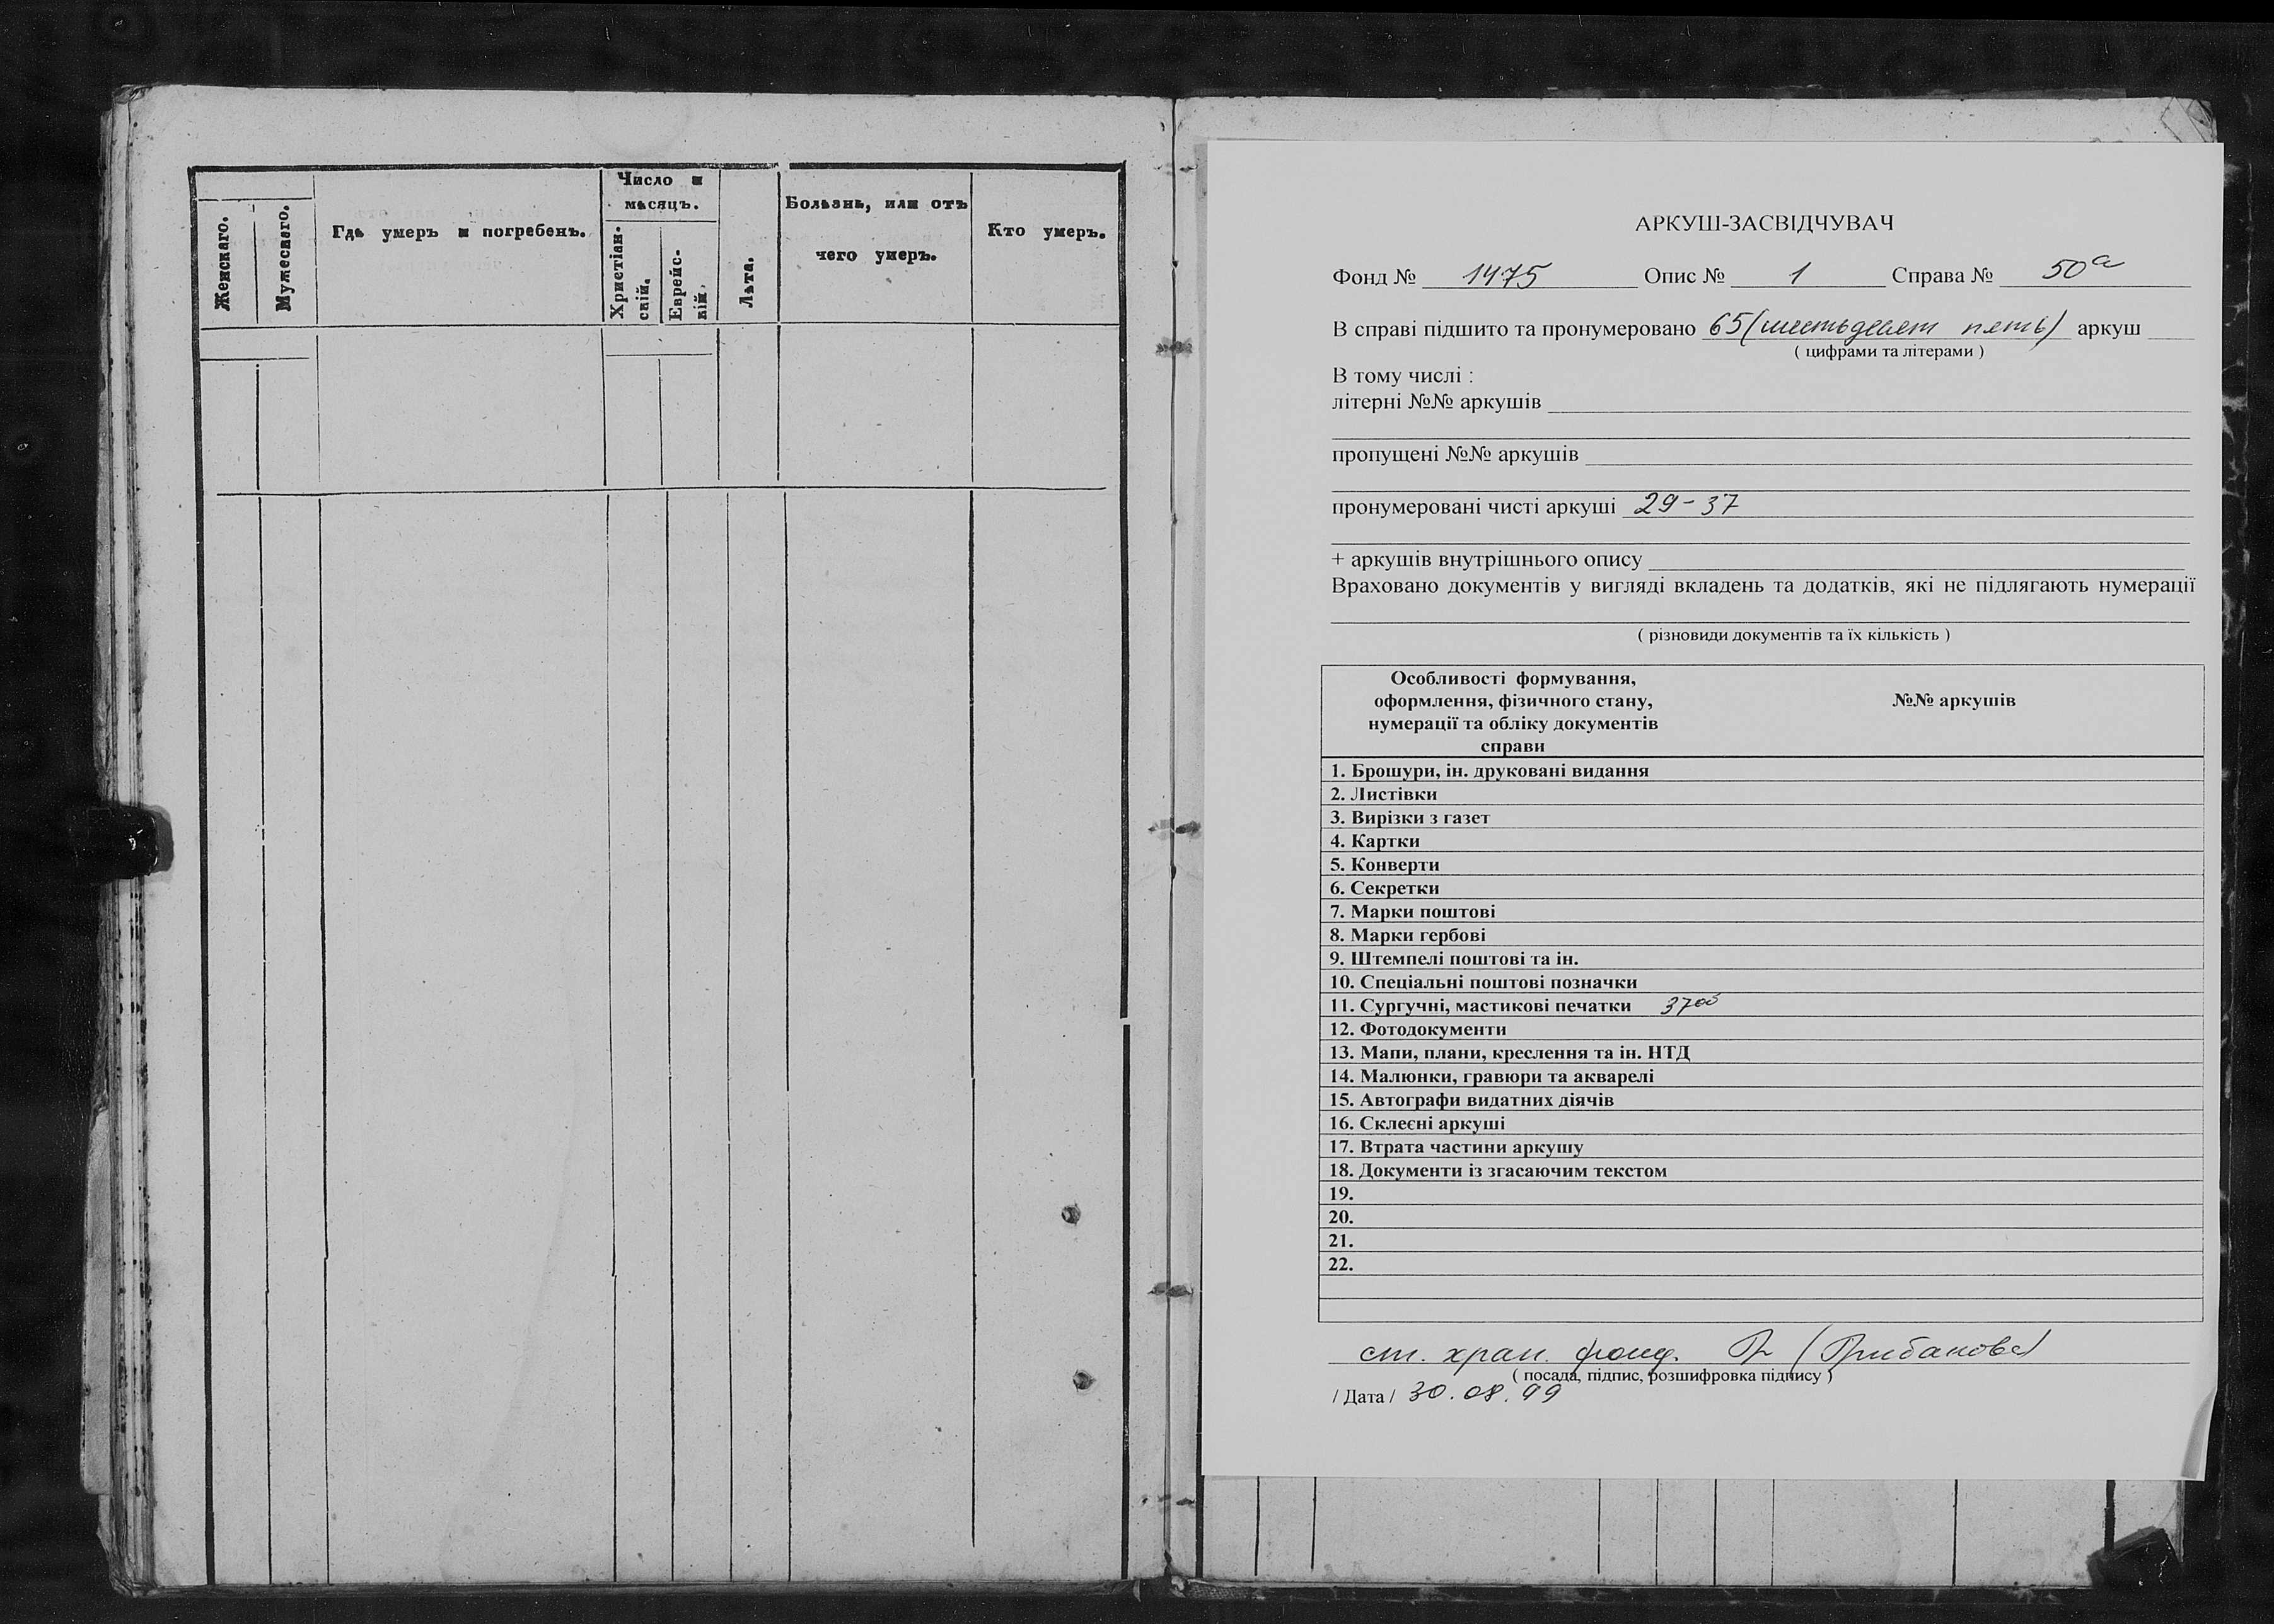 Женскаго.
Мужескаго.
Гдѣ умеръ и погребенъ.
Число и
мѣсяцъ.
Христіан-
скій.
Еврейс-
кій.
Лѣта.
Болѣзнь, или отъ
чего умеръ.
Кто умеръ.
АРКУШ-ЗАСВІДЧУВАЧ
Фонд № 1475 Опис № 1 Справа № 50а
В справі підшито та пронумеровано 65 (шестьдесят пять) аркуш
( цифрами та літерами )
В тому числі :
літерні №№ аркушів
пропущені №№ аркушів
пронумеровані чисті аркуші 29-37
+ аркушів внутрішнього опису
Враховано документів у вигляді вкладень та додатків, які не підлягають нумерації
( різновиди документів та їх кількість )
Особливості формування,
оформлення, фізичного стану,
нумерації та обліку документів
справи
№№ аркушів
1. Брошури, ін. друковані видання
2. Листівки
3. Вирізки з газет
4. Картки
5. Конверти
6. Секретки
7. Марки поштові
8. Марки гербові
9. Штемпелі поштові та ін.
10. Спеціальні поштові позначки
11. Сургучні, мастикові печатки 37об
12. Фотодокументи
13. Мапи, плани, креслення та ін. НТД
14. Малюнки, гравюри та акварелі
15. Автографи видатних діячів
16. Склеєні аркуші
17. Втрата частини аркушу
18. Документи із згасаючим текстом
19.
20.
21.
22.
ст. хран. фонд. (Грибанова)
( посада, підпис, розшифровка підпису )
/ Дата / 30.08.99